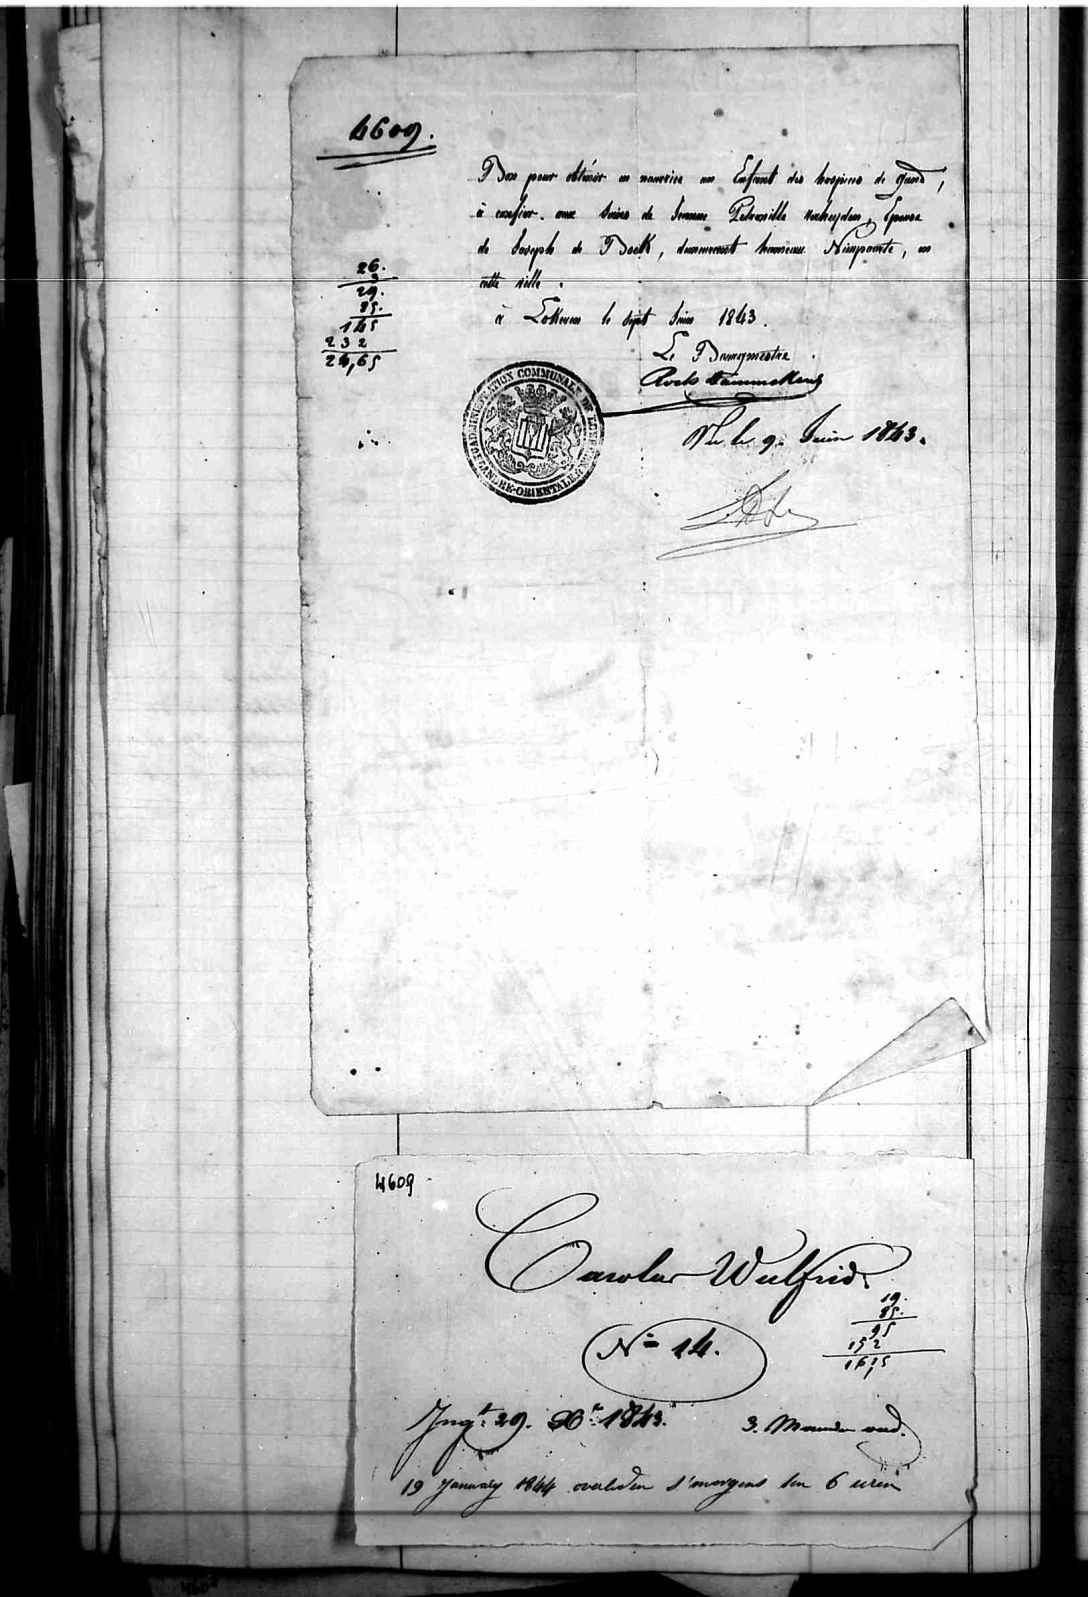 4609.
Bon pour obtenir en nourrice un Enfant des hospices de gand,
à confier aux soins de femme Petronille Verheyden, Epouse
de Joseph de Bock, demeurant hameau Nieupoorte, en
cette ville.
à Lokeren le sept Juin 1843.
Le Bourgmestre
26.
3
29.
85.
145
232
24,65
ADMINISTRATION COMMUNALE DE LOKEREN
(FLANDRE-ORIENTALE)
Vu le 9. Juin 1843.
4609
Carolus Wulfrid
19.
85.
95
152
16,15
N° 14.
Ingt. 29. Xbr 1843.
3. Maanden oud.
19 January 1844 overleden s'morgens ten 6 uren